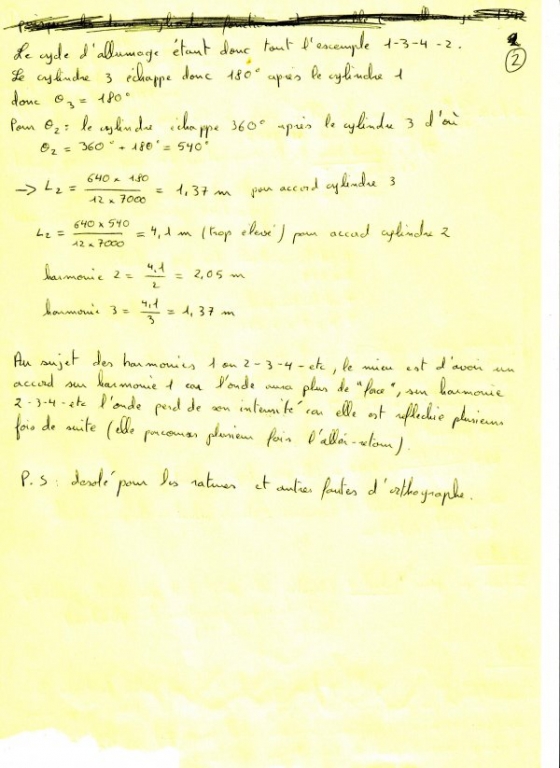 2
Le cycle d'allumage étant donc tout l'exemple 1-3-4-2.
Le cylindre 3 échappe donc 180° après le cylindre 1
donc θ3 = 180°
Pour θ2 : le cylindre échappe 360° après le cylindre 3 d'où
θ2 = 360° + 180° = 540°
→ L2 = (640 x 180)/(12 x 7000) = 1,37 m pour accord cylindre 3
L2 = (640 x 540)/(12 x 7000) = 4,1 m (trop elevé) pour accord cylindre 2
harmonie 2 = 4,1/2 = 2,05 m
harmonie 3 = 4,1/3 = 1,37 m
Au sujet des harmonies 1 ou 2-3-4-etc, le mieu est d'avoir un
accord sur harmonie 1 car l'onde aura plus de "force", sur harmonie
2-3-4-etc l'onde perd de son intensité car elle est reflechie plusieurs
fois de suite (elle plusieur fois l'aller-retour).
P.S : desolé pour les ratures et autres fautes d'orthographe.